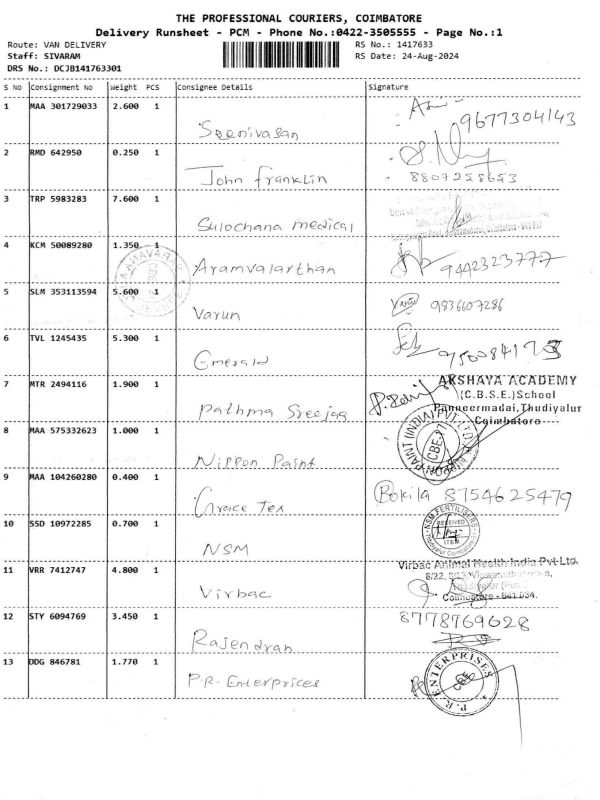 THE PROFESSIONAL COURIERS, COIMBATORE
Delivery Runsheet - PCM - Phone No.:0422-3505555 - Page No.:1
Route: VAN DELIVERY RS No.: 1417633
Staff: SIVARAM RS Date: 24-Aug-2024
DRS No.: DCJB141763301
S No Consignment No Weight PCS Consignee Details Signature
1 MAA 301729033 2.600 1 Sreenivasan 9677304143
2 RMD 642950 0.250 1 John franklin
8807258653
3 TRP 5983283 7.600 1 Sulochana medical
4 KCM 50089280 1.350 1 Aramvalarthan 9442323777
5 SLM 353113594 5.600 1 Varun 9836607286
6 TVL 1245435 5.300 1 Emerald
7 MTR 2494116 1.900 1 Pathma Sreejaa
AKSHAYA ACADEMY
(C.B.S.E.) School
Panneermadai, Thudiyalur
Coimbatore
8 MAA 575332623 1.000 1 Nippon Paint
PAINT (INDIA) PVT. LTD.
9 MAA 104260280 0.400 1 Grace Tex Rokila 8754625479
10 SSD 10972285 0.700 1 NSM
NSM FERTILISERS
RECEIVED
11 VRR 7412747 4.800 1 Virbac
Virbac Animal Health India Pvt Ltd.
Coimbatore - 641 034.
12 STY 6094769 3.450 1 Rajendran 8778769628
13 DDG 846781 1.770 1 P.R. Enterprices
P.R. ENTERPRISES